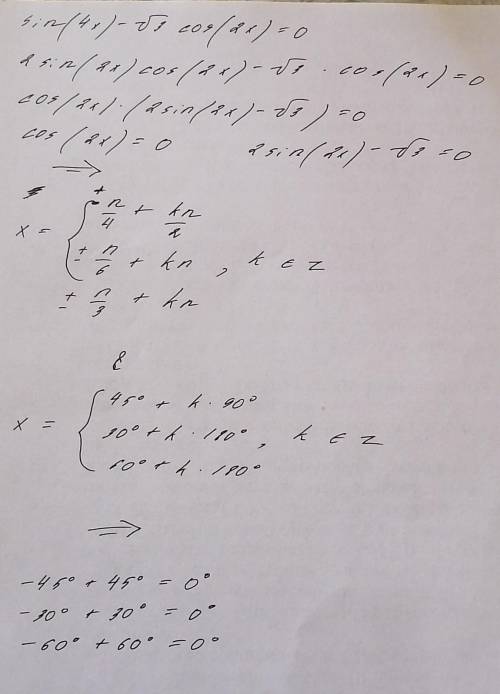 sin(4x) - √3 cos(2x) = 0
2 sin(2x) cos(2x) - √3 · cos(2x) = 0
cos(2x) · (2sin(2x) - √3) = 0
cos(2x) = 0 2sin(2x) - √3 = 0
⇒
x = { ± π/4 + kπ/2
± π/6 + kπ , k ∈ Z
± π/3 + kπ
x = { 45° + k · 90°
30° + k · 180° , k ∈ Z
60° + k · 180°
⇒
-45° + 45° = 0°
-30° + 30° = 0°
-60° + 60° = 0°